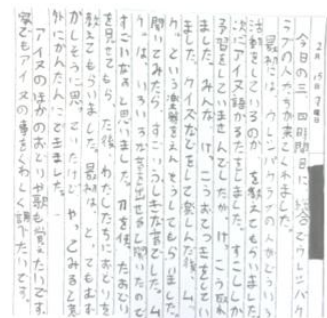 2月15日 曜日
今日の三、四時間目に、総合でウレシパク
ラブの人たちが来てくれました。
最初には、ウレシパクラブの人がどういう
活動をしているのか、を教えてもらいました。
次にアイヌ語かるたをしました。すこししか
予習をしていませんでしたが、けっこう取れ
ました。みんな、けっこうおてつきをしてい
ました。クイズなどをして楽しんだ後、ム
ックリという楽器をえんそうしてもらいました。
聞いてみたら、すごいふしぎな音でした。ム
ックリは、いろいろな音が出せると聞いたので
すごいなあと思いました。刀を使ったおどり
を見せてもらった後、わたしたちにおどりを
教えてもらいました。最初は、とってもむず
かしそうに思っていたけど、やってみると意
外にかんたんにできました。
アイヌのほかのおどりや歌も覚えたいです。
家でもアイヌの事をくわしく調べたいです。